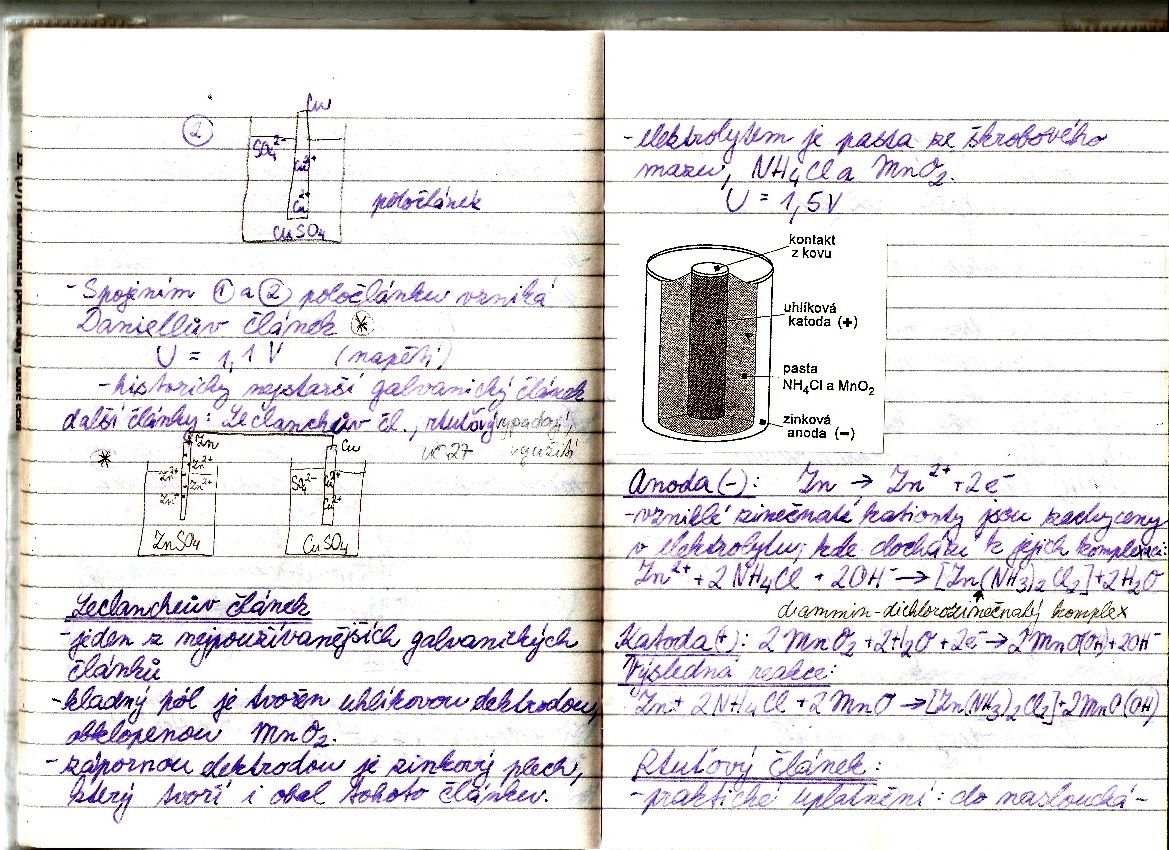 2
Cu
SO₄²⁻
Cu²⁺
Cu²⁺
CuSO₄
poločlánek
- Spojením ① a ② poločlánku vzniká
Daniellův článek *
U = 1,1 V (napětí)
- historicky nejstarší galvanický článek
další články: Leclancheův čl., rtuťový
*
Zn
Zn²⁺
Zn²⁺
Zn²⁺
Zn²⁺
ZnSO₄
Cu
SO₄²⁻
Cu²⁺
Cu²⁺
CuSO₄
Leclancheův článek
- jeden z nejpoužívanějších galvanických
článků
- kladný pól je tvořen uhlíkovou elektrodou,
obklopenou MnO₂.
- zápornou elektrodou je zinkový plech,
který tvoří i obal tohoto článku.
- elektrolytem je pasta ze škrobového
mazu, NH₄Cl a MnO₂.
U = 1,5 V
kontakt
z kovu
uhlíková
katoda (+)
pasta
NH₄Cl a MnO₂
zinková
anoda (−)
Anoda (-): Zn → Zn²⁺ + 2e⁻
- vzniklé zinečnaté kationty jsou zachyceny
v elektrolytu, kde dochází k jejich komplexaci:
Zn²⁺ + 2 NH₄Cl + 2OH⁻ → [Zn(NH₃)₂Cl₂] + 2H₂O
diammin-dichlorozinečnatý komplex
Katoda (+): 2 MnO₂ + 2H₂O + 2e⁻ → 2MnO(OH) + 2OH⁻
Výsledná reakce:
Zn + 2 NH₄Cl + 2 MnO → [Zn(NH₃)₂Cl₂] + 2MnO(OH)
Rtuťový článek:
- praktické uplatnění: do naslouchá-